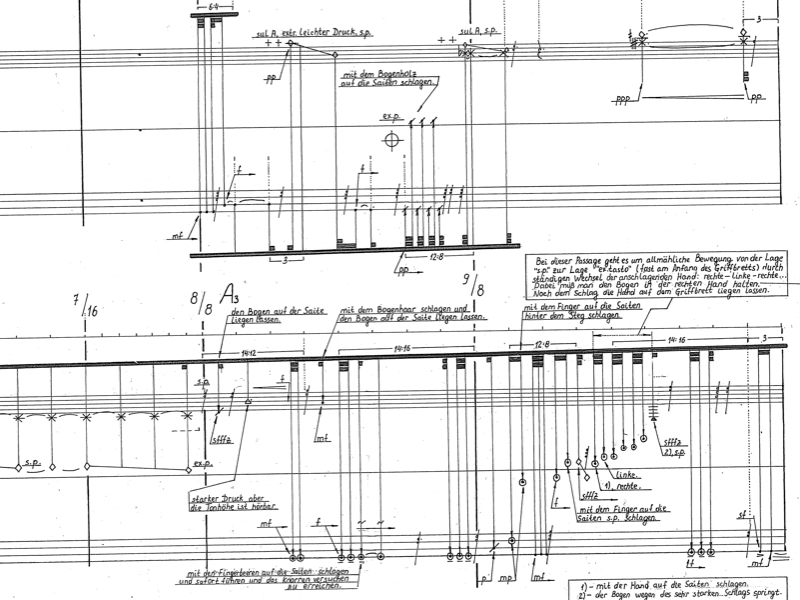 6:4
sul A, extr. leichter Druck, s.p.
sul A, s.p.
3
pp
mit dem Bogenholz
auf die Saiten schlagen.
ppp
pp
ex.p.
f
f
mf
3
12:8
pp
Bei dieser Passage geht es um allmähliche Bewegung von der Lage
"s.p." zur Lage "ex.tasto" (fast am Anfang des Griffbretts) durch
ständigen Wechsel der anschlagenden Hand: rechte-linke-rechte...
Dabei muß man den Bogen in der rechten Hand halten.
Noch dem Schlag, die Hand auf dem Griffbrett liegen lassen.
7/16
8/8
A3
9/8
den Bogen auf der Saite
liegen lassen.
mit dem Bogenhaar schlagen und
den Bogen auf der Saite liegen lassen.
mit dem Finger auf die Saiten
hinter dem Steg schlagen.
14:12
14:16
12:8
14:16
3
s.p.
f
sfffz
mf
sfffz
2), s.p.
s.p.
ex.p.
linke.
1), rechte.
sfffz
starker Druck, aber
die Tonhöhe ist hörbar.
f
mit dem Finger auf die
Saiten s.p. schlagen.
mf
f
sf
mit den Fingerbeeren auf die Saiten schlagen
und sofort führen und das knorren versuchen
zu erreichen.
p
mp
mf
ff
mf
1)- mit der Hand auf die Saiten schlagen.
2)- der Bogen wegen des sehr starken Schlags springt.